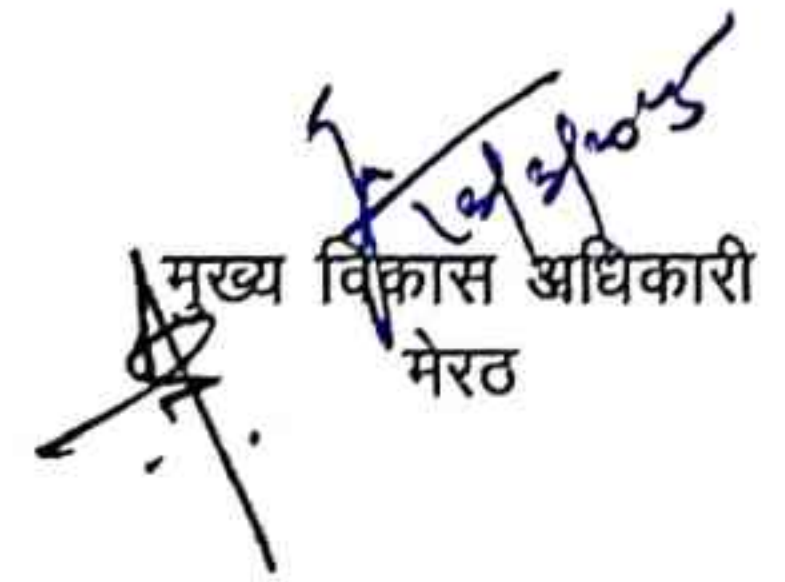 मुख्य विकास अधिकारी
मेरठ